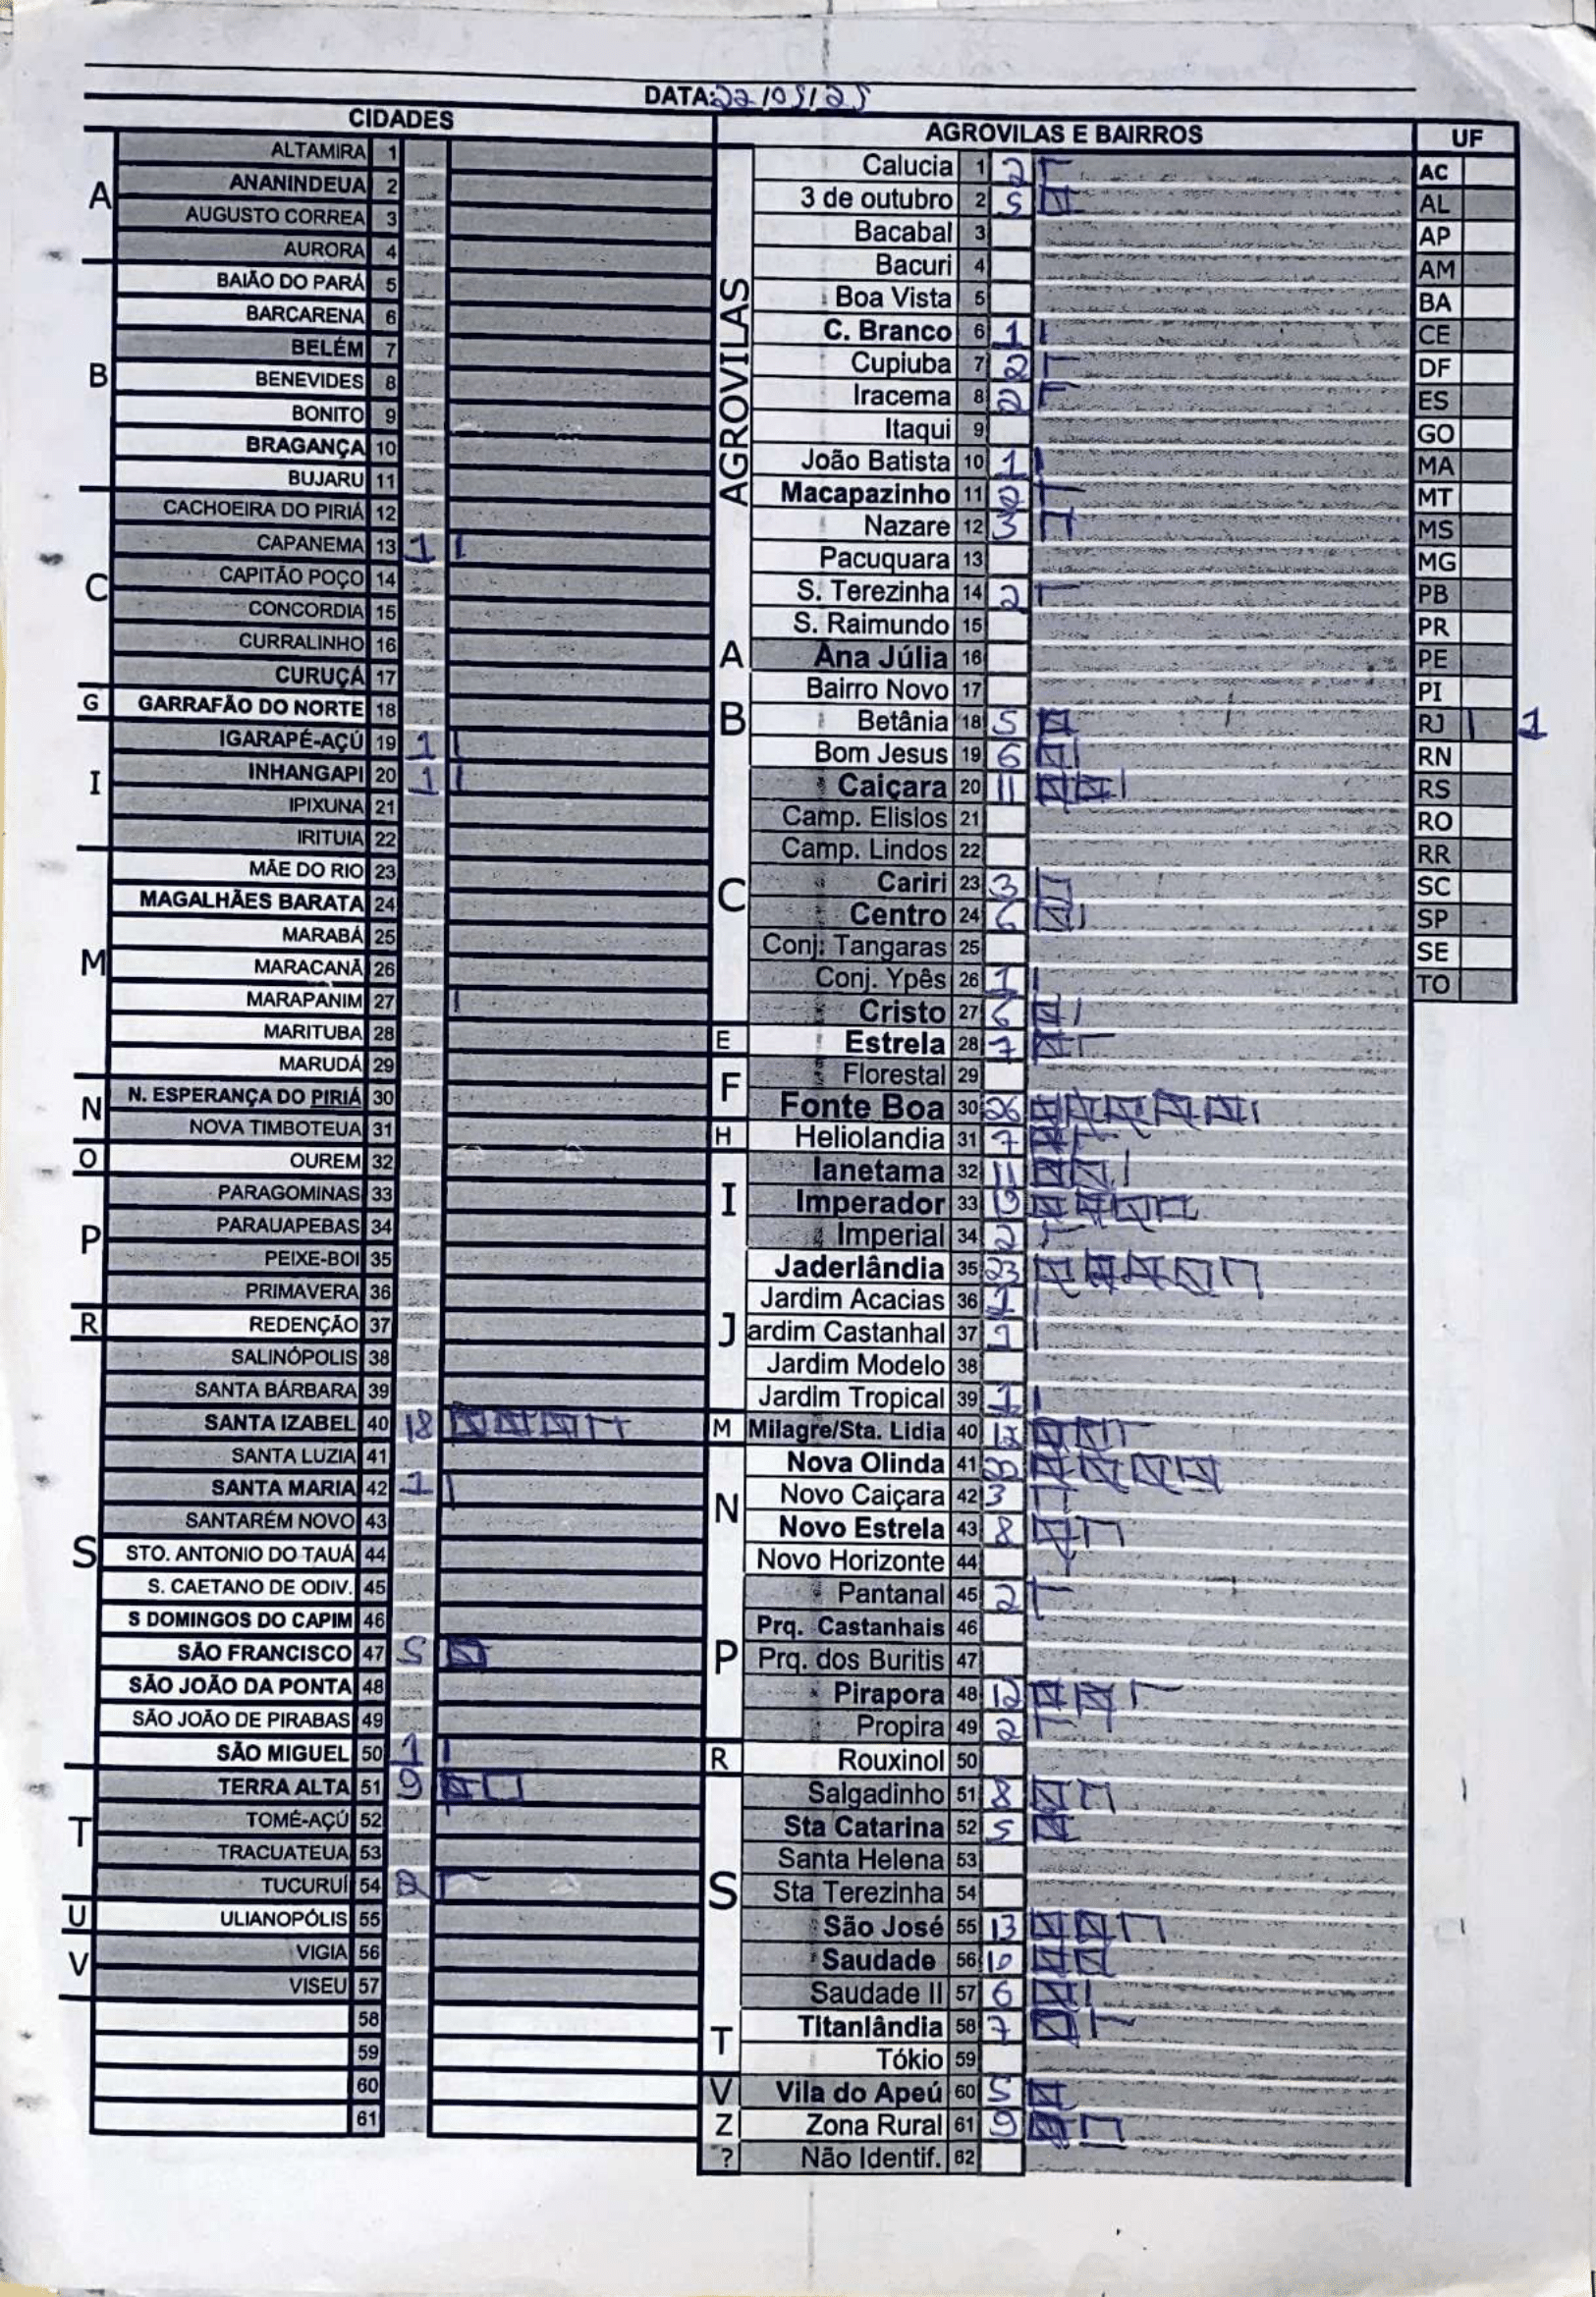 DATA: 22/05/25
CIDADES
A
ALTAMIRA 1
ANANINDEUA 2
AUGUSTO CORREA 3
AURORA 4
B
BAIÃO DO PARÁ 5
BARCARENA 6
BELÉM 7
BENEVIDES 8
BONITO 9
BRAGANÇA 10
BUJARU 11
C
CACHOEIRA DO PIRIÁ 12
CAPANEMA 13 1
CAPITÃO POÇO 14
CONCORDIA 15
CURRALINHO 16
CURUÇÁ 17
G GARRAFÃO DO NORTE 18
I
IGARAPÉ-AÇÚ 19 1
INHANGAPI 20 1
IPIXUNA 21
IRITUIA 22
M
MÃE DO RIO 23
MAGALHÃES BARATA 24
MARABÁ 25
MARACANÃ 26
MARAPANIM 27
MARITUBA 28
MARUDÁ 29
N
N. ESPERANÇA DO PIRIÁ 30
NOVA TIMBOTEUA 31
O OUREM 32
P
PARAGOMINAS 33
PARAUAPEBAS 34
PEIXE-BOI 35
PRIMAVERA 36
R REDENÇÃO 37
S
SALINÓPOLIS 38
SANTA BÁRBARA 39
SANTA IZABEL 40 18
SANTA LUZIA 41
SANTA MARIA 42 1
SANTARÉM NOVO 43
STO. ANTONIO DO TAUÁ 44
S. CAETANO DE ODIV. 45
S DOMINGOS DO CAPIM 46
SÃO FRANCISCO 47 5
SÃO JOÃO DA PONTA 48
SÃO JOÃO DE PIRABAS 49
SÃO MIGUEL 50 1
T
TERRA ALTA 51 9
TOMÉ-AÇÚ 52
TRACUATEUA 53
TUCURUÍ 54 2
U ULIANOPÓLIS 55
V
VIGIA 56
VISEU 57
58
59
60
61
AGROVILAS E BAIRROS
AGROVILAS
Calucia 1 2
3 de outubro 2 5
Bacabal 3
Bacuri 4
Boa Vista 5
C. Branco 6 1
Cupiuba 7 2
Iracema 8 2
Itaqui 9
João Batista 10 1
Macapazinho 11 2
Nazare 12 3
Pacuquara 13
S. Terezinha 14 2
S. Raimundo 15
A Ana Júlia 16
B
Bairro Novo 17
Betânia 18 5
Bom Jesus 19 6
C
Caiçara 20 11
Camp. Elisios 21
Camp. Lindos 22
Cariri 23 3
Centro 24 6
Conj. Tangaras 25
Conj. Ypês 26 1
Cristo 27 6
E Estrela 28 7
F
Florestal 29
Fonte Boa 30 26
H Heliolandia 31 7
I
Ianetama 32 11
Imperador 33
Imperial 34 2
J
Jaderlândia 35 23
Jardim Acacias 36 1
ardim Castanhal 37 1
Jardim Modelo 38
Jardim Tropical 39 1
M Milagre/Sta. Lidia 40 12
N
Nova Olinda 41 20
Novo Caiçara 42 3
Novo Estrela 43 8
Novo Horizonte 44
P
Pantanal 45 2
Prq. Castanhais 46
Prq. dos Buritis 47
Pirapora 48 12
Propira 49 2
R Rouxinol 50
S
Salgadinho 51 8
Sta Catarina 52 5
Santa Helena 53
Sta Terezinha 54
São José 55 13
Saudade 56 10
Saudade II 57 6
T
Titanlândia 58 7
Tókio 59
V Vila do Apeú 60 5
Z Zona Rural 61 9
? Não Identif. 62
UF
AC
AL
AP
AM
BA
CE
DF
ES
GO
MA
MT
MS
MG
PB
PR
PE
PI
RJ 1
RN
RS
RO
RR
SC
SP
SE
TO